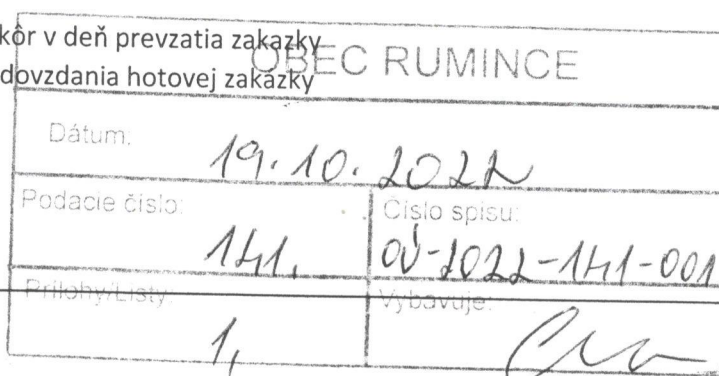 kôr v deň prevzatia zakazky
dovzdania hotovej zakázky
OBEC RUMINCE
Dátum: 19.10.2022
Podacie číslo: 141.
Číslo spisu: OÚ-2022-141-001
Prílohy/Listy: 1,
Vybavuje: